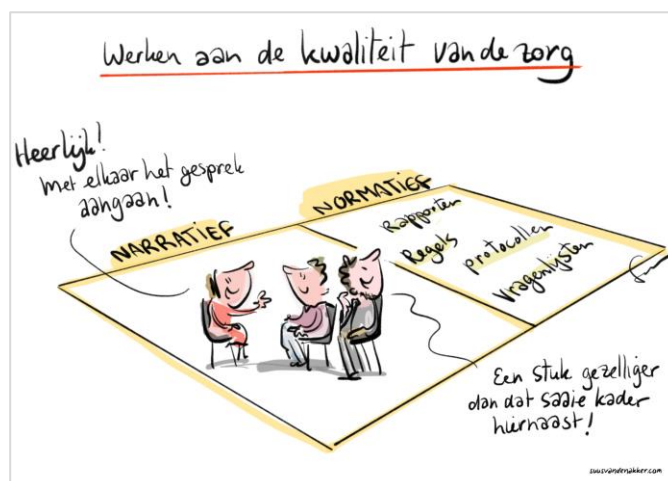 Werken aan de kwaliteit van de zorg
Heerlijk!
Met elkaar het gesprek
aangaan!
NARRATIEF
NORMATIEF
Rapporten
Regels
protocollen
Vragenlijsten
Een stuk gezelliger
dan dat saaie kader
hiernaast!
suusvandenakker.com